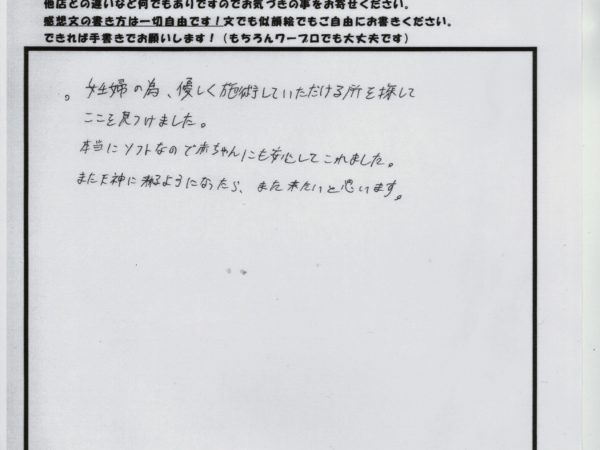 他店との違いなど何でもありですのでお気づきの事をお寄せください。
感想文の書き方は一切自由です！文でも似顔絵でもご自由にお書きください。
できれば手書きでお願いします！（もちろんワープロでも大丈夫です）
。妊婦の為、優しく施術していただける所を探して
ここを見つけました。
本当にソフトなので赤ちゃんにも安心してこれました。
また天神に来るようになったら、また来たいと思います。